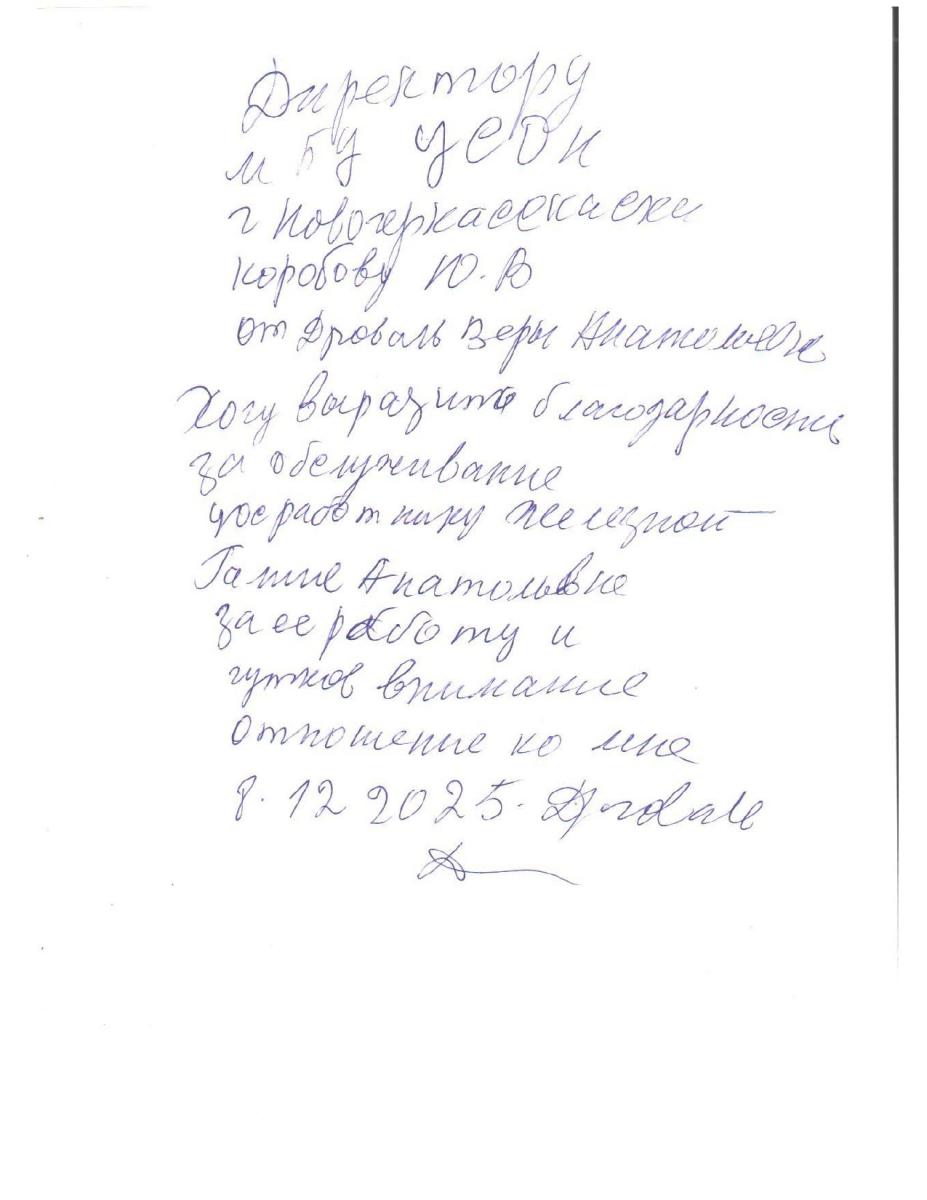 Директору
МБУ ЦСОН
г Новочеркасскаска
Коробову Ю.В
от Дроваль Веры Анатольевне
Хочу выразить благодарность
за обслуживание
цосработнику Железной
Галине Анатольевне
за ее работу и
чуткое внимание
отношение ко мне
8.12 2025.